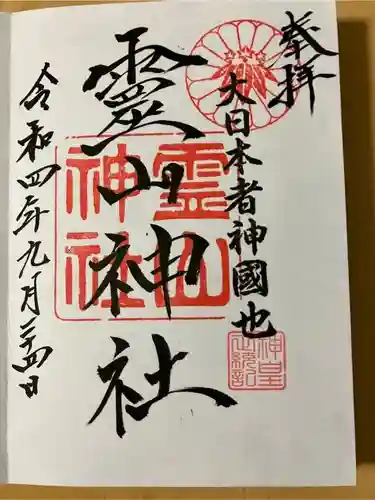 奉拝
大日本者神國也
靈山神社
令和四年九月二十四日
霊山
神社
神皇
正統記